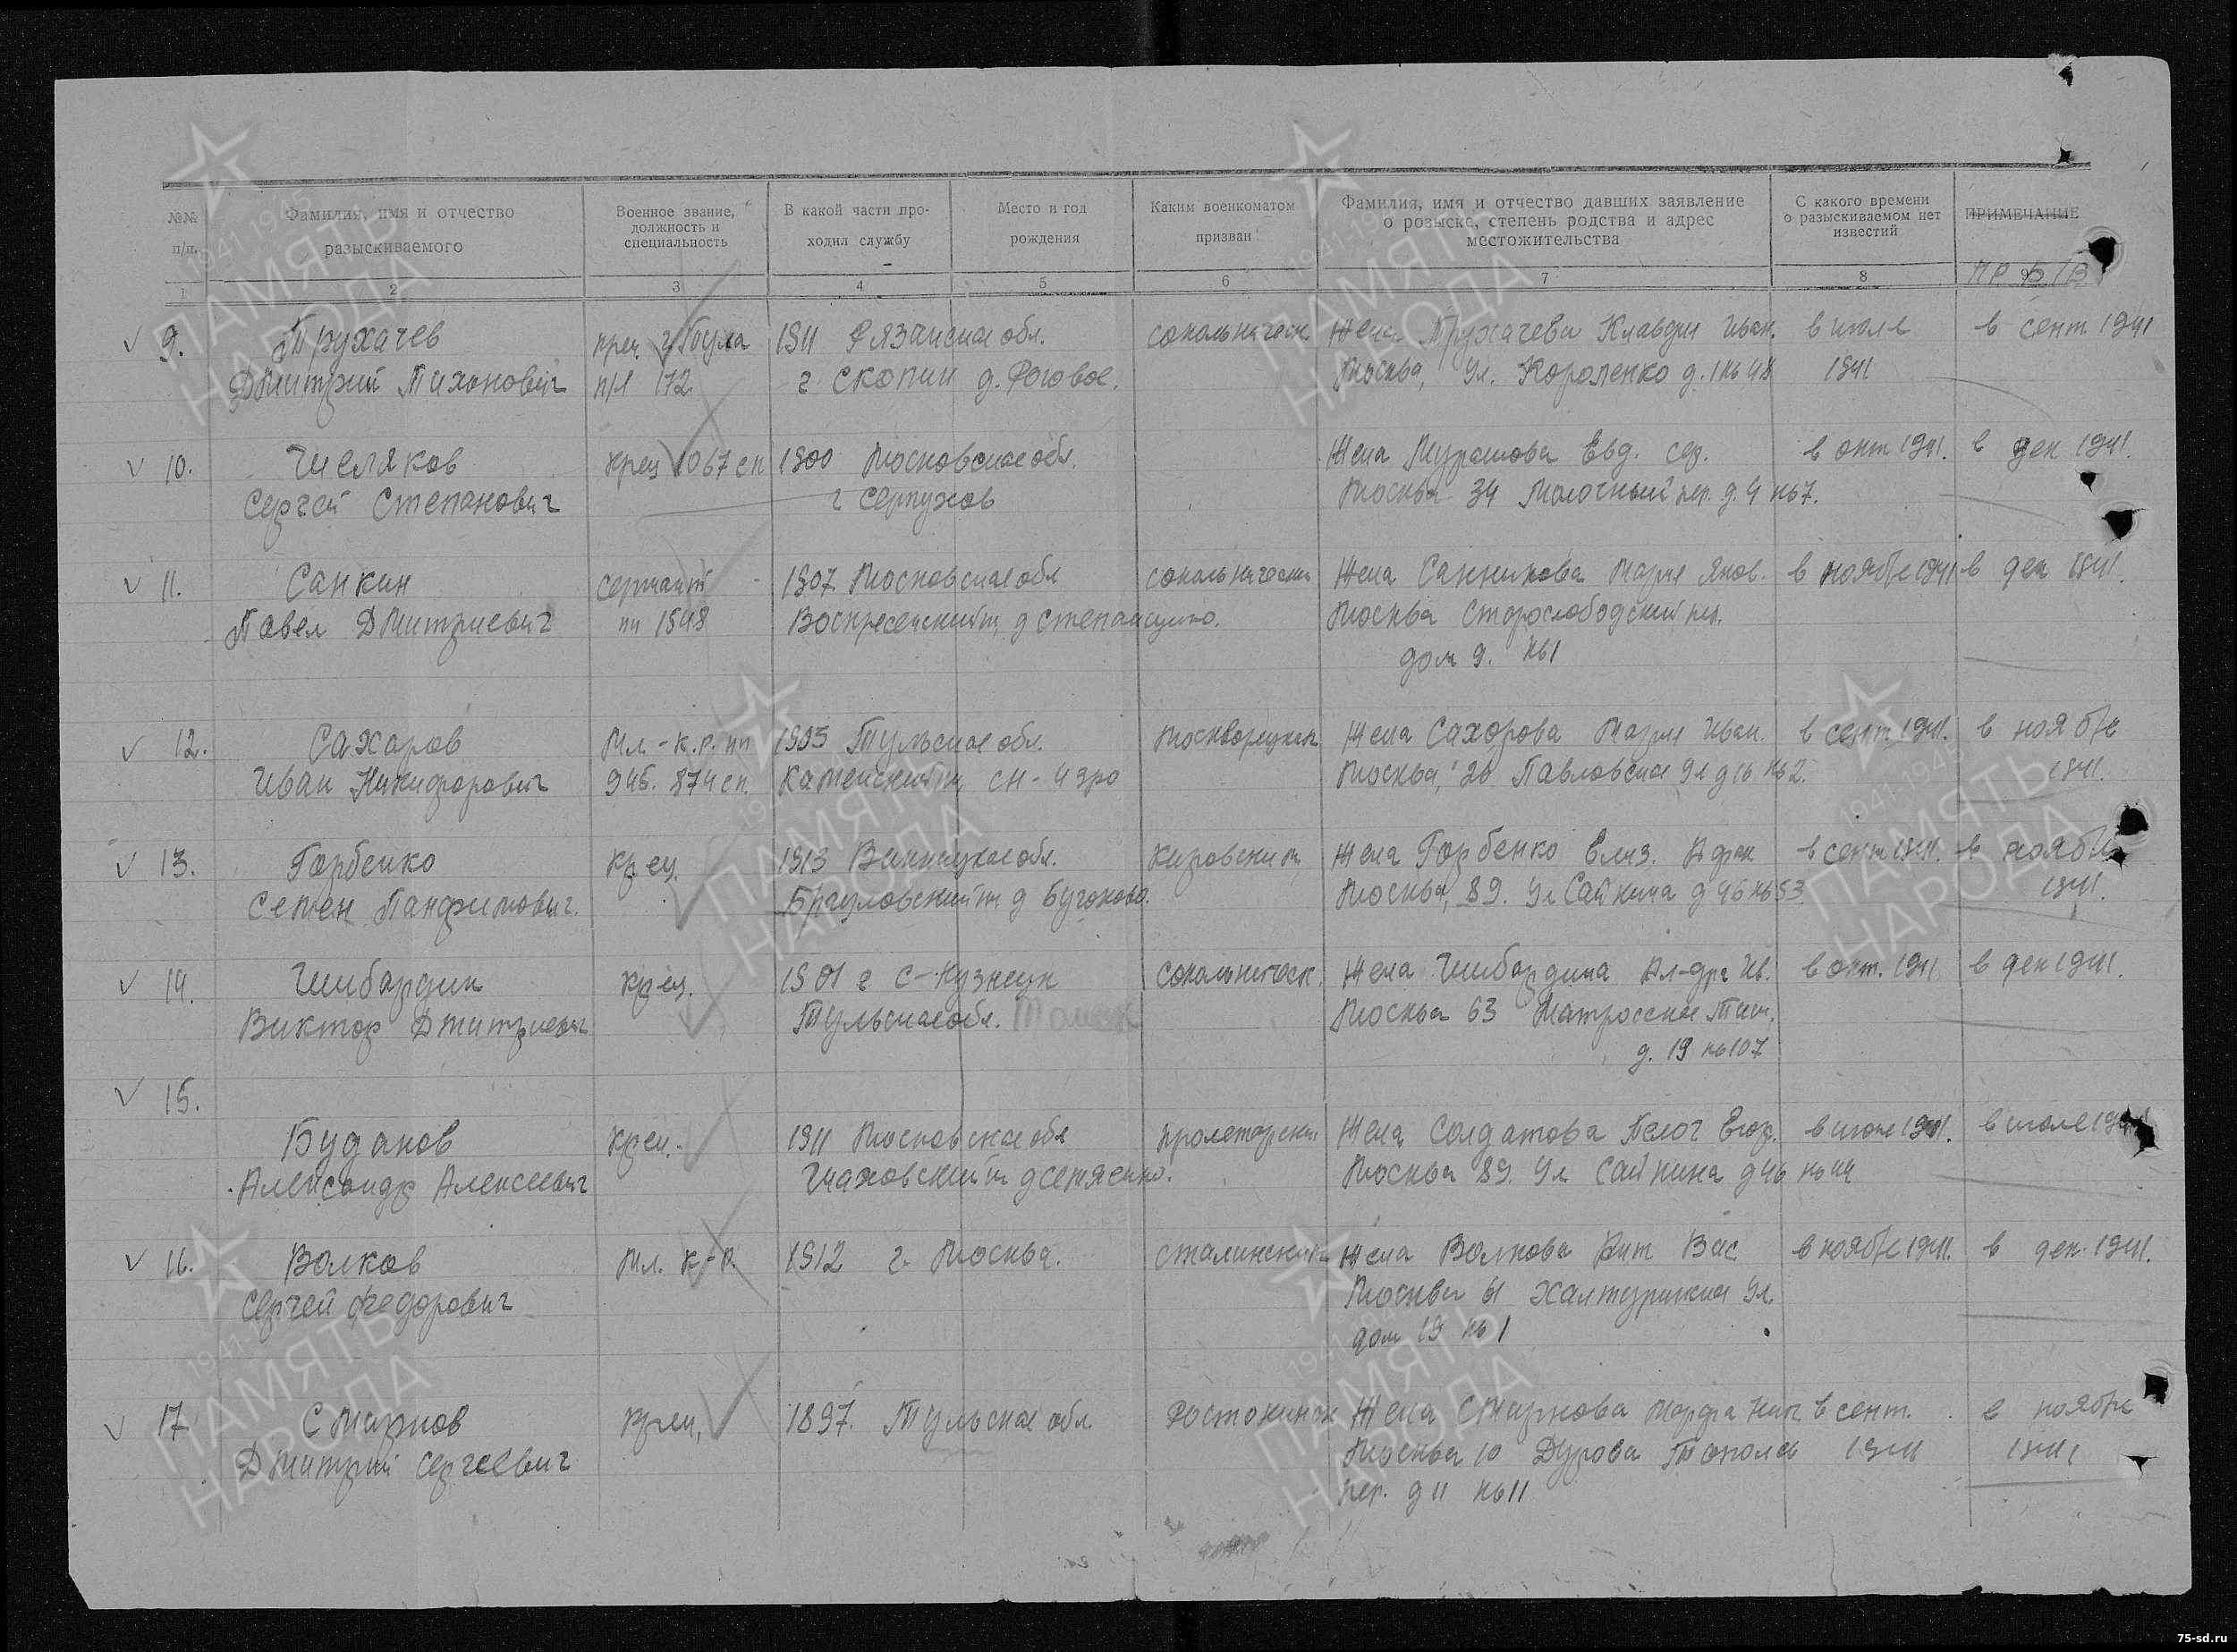 №№ п/п.
Фамилия, имя и отчество разыскиваемого
Военное звание, должность и специальность
В какой части проходил службу
Место и год рождения
Каким военкоматом призван
Фамилия, имя и отчество давших заявление о розыске, степень родства и адрес местожительства
С какого времени о разыскиваемом нет известий
ПРИМЕЧАНИЕ
1 2 3 4 5 6 7 8 9
9. Трухачев 1911 Рязанская обл. сокольническ. Жена Трухачева Клавдия Иван. в июле в сент 1941
Дмитрий Тихонович п/я 172 г. Скопин д. Роговое. Москва, ул. Короленко д. 1 кв 48 1941
10. Шеляков крец 1067 сп 1900 Московская обл. Жена Мурашова Евд. Сер. в окт 1941. в дек 1941.
Сергей Степанович г Серпухов Москва 34 Молочный пер. д. 4 кв 7.
11. Санкин сержант 1907 Московская обл сокольнически Жена Санникова Мария Яков. в ноябре 1941 в дек 1941.
Павел Дмитриевич пп 1548 Воскресенский д Степанщино. Москва Старослободский пер.
дом 9. кв 1
12. Сахаров Мл. - к.р. пп Тульская обл. Москворецким Жена Сахорова Мария Иван. в сент. 1941. в ноябре
Иван Никифорович 946. 874 сп. Каменский Москва, Павловская ул д 16 кв 2. 1941.
13. Горбенко крец. 1913 Винницкая обл. Кировским Жена Горбенко Елиз. в сент 1941. в ноябре
Семен Панфилович. Москва, 89. ул Сайкина д 46 кв 53 1941.
14. Шибардин крец. 1901 Сокольническ. Жена Шибардина Ал-дра Ив. в окт. 1941 в дек 1941.
Виктор Дмитриевич Тульская обл. Томск Москва 63 Матросская Тиш.
д. 19 кв 107
15.
Буданов крец. 1911 Московская обл пролетарским Жена Солдатова Пелог Егор. в июле 1941. в июле 1941
Александр Алексеевич Шаховский Москва 89. ул Сайкина д 46 кв 44
16. Волков Мл. к-р. 1912 г. Москва. Сталинским Жена Волкова Вас в ноябре 1941. в дек. 1941.
Сергей Федорович Москва 61 Халтуринская ул.
дом 19 кв 1
17 Смирнов крец. 1897. Тульская обл Ростокинск Жена Смирнова Марфа Ник в сент. в ноябре
Дмитрий Сергеевич Москва 10 Дурова 1941 1941
пер. д 11 кв 11
1941 1945
ПАМЯТЬ
НАРОДА
75-sd.ru